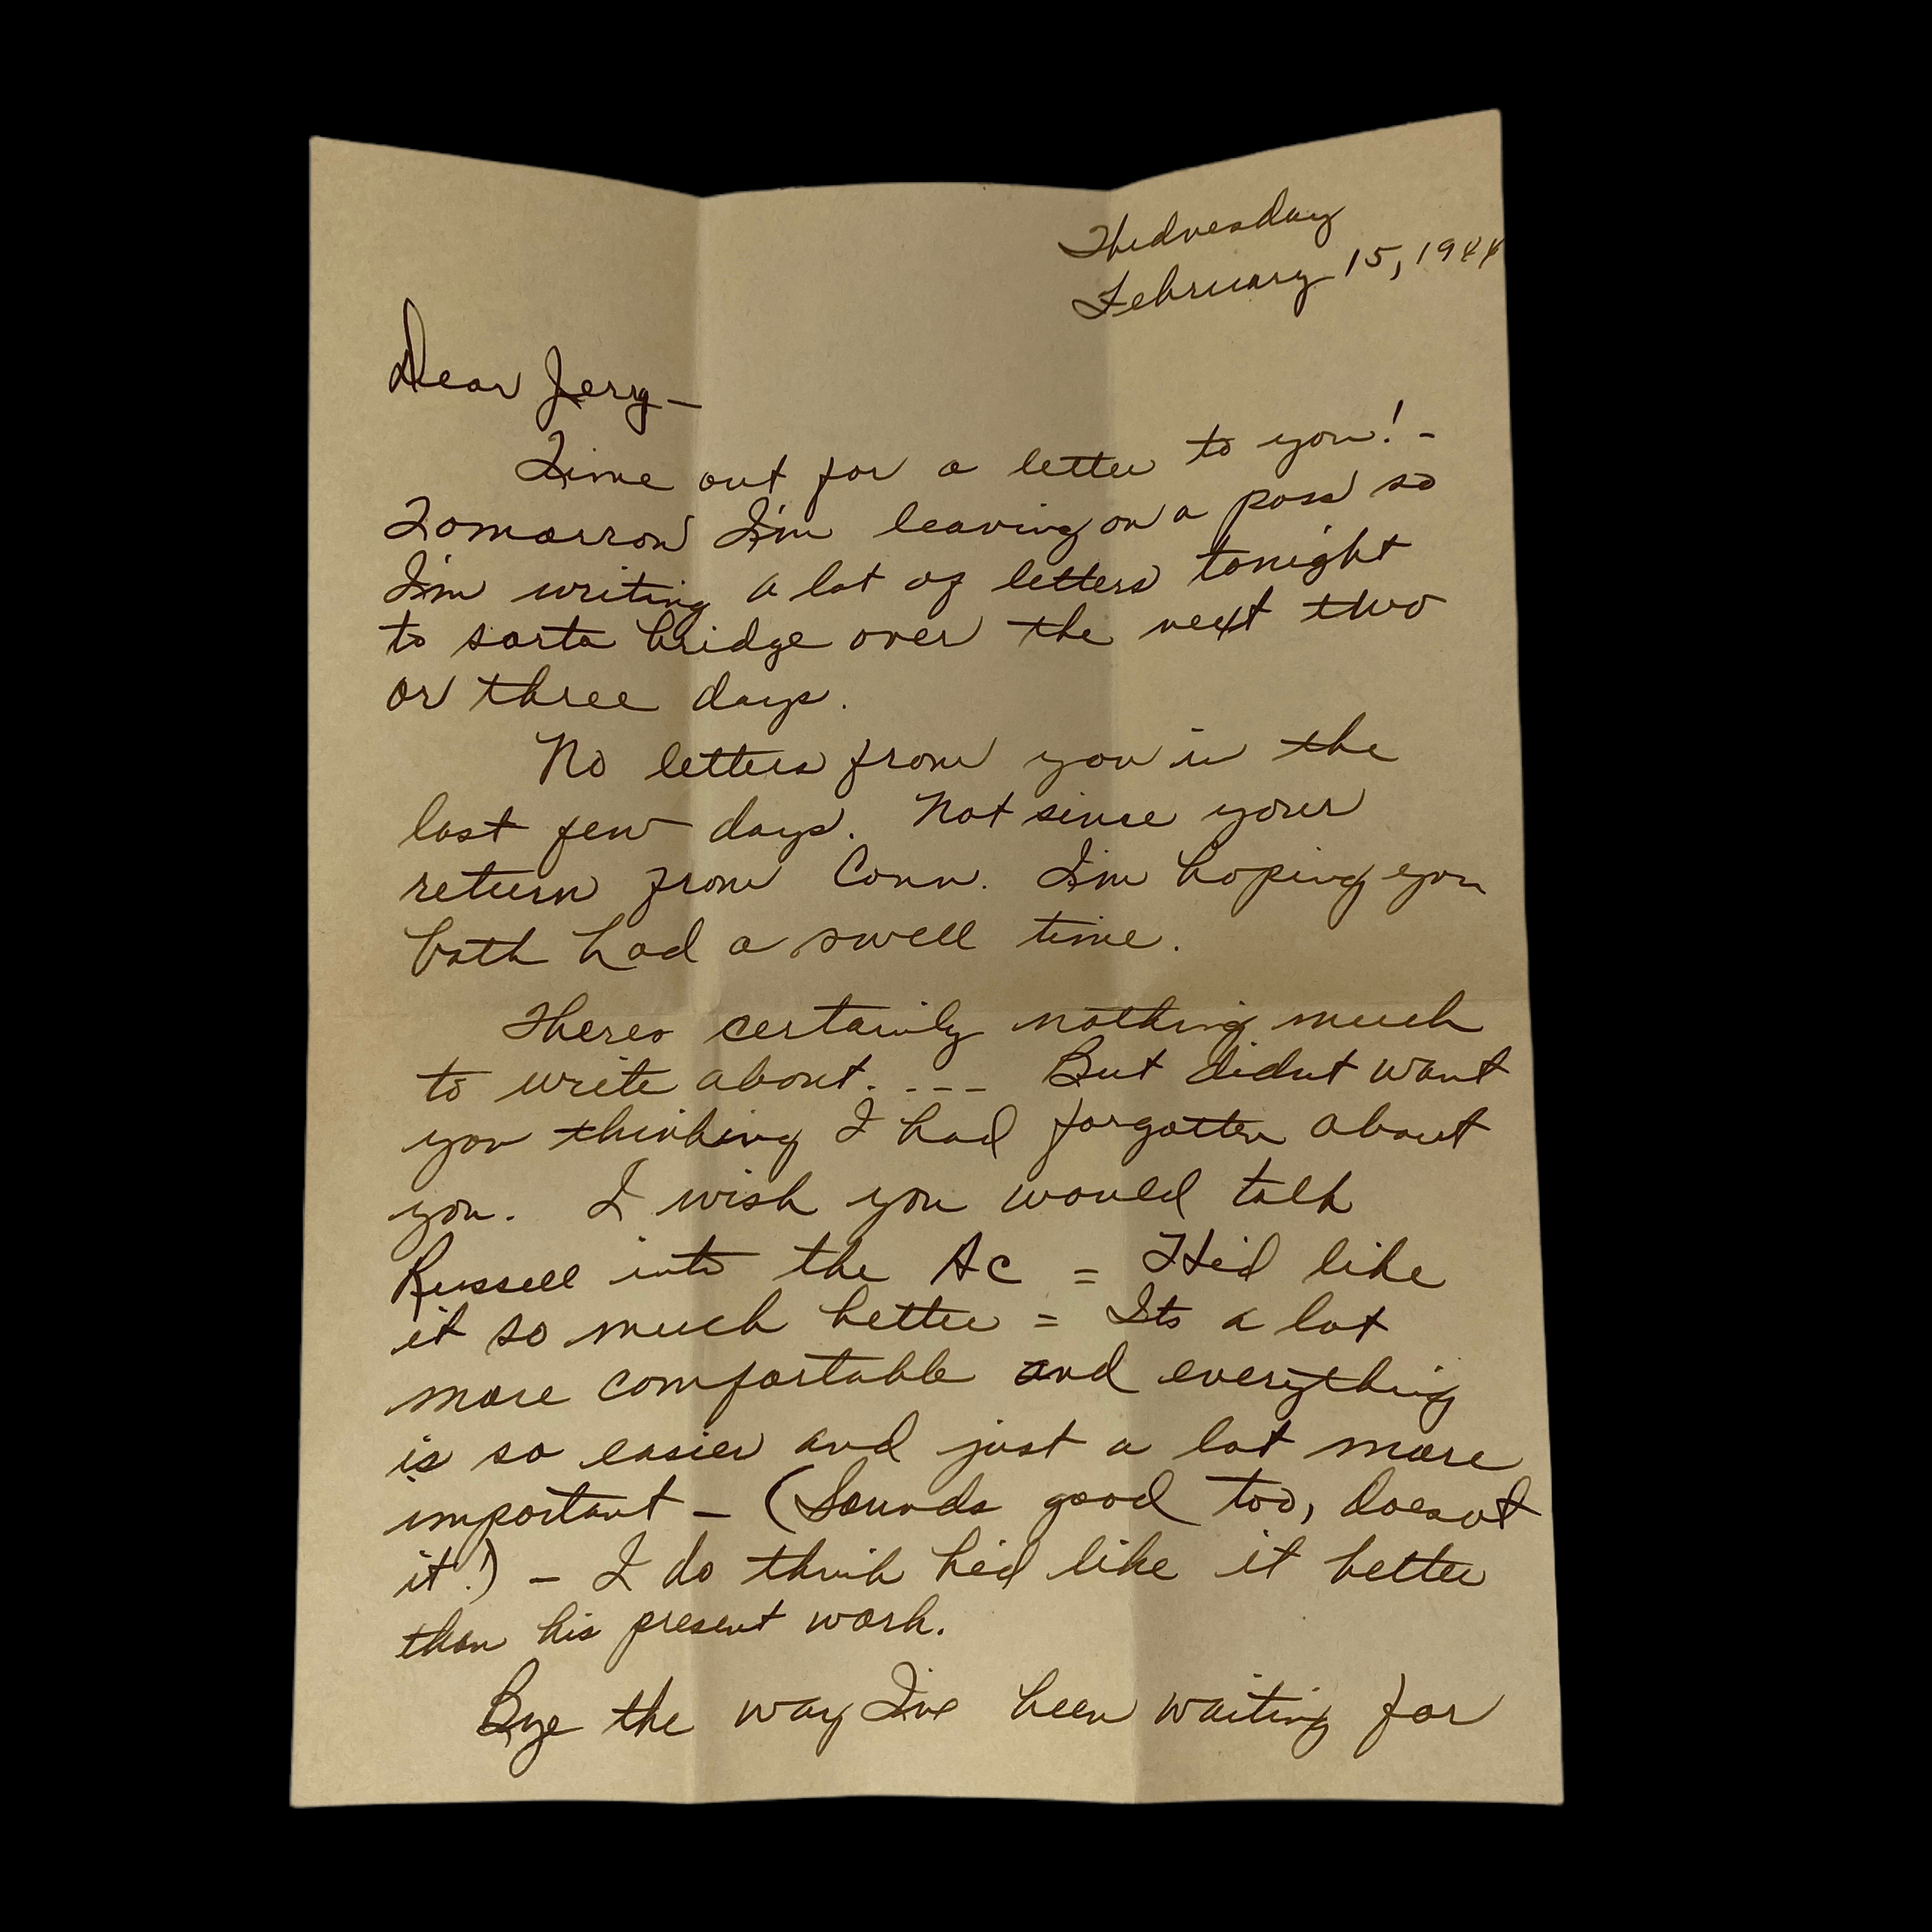 Wednesday
February 15, 1944
Dear Jerry —
Time out for a letter to you! -
Tomorrow I'm leaving on a pass so
I'm writing a lot of letters tonight
to sorta bridge over the next two
or three days.
No letters from you in the
last few days. Not since your
return from Conn. I'm hoping you
both had a swell time.
Theres certainly nothing much
to write about. --- But didnt want
you thinking I had forgotten about
you. I wish you would talk
Russell into the AC = He'd like
it so much better = Its a lot
more comfortable and everything
is so easier and just a lot more
important — (Sounds good too, doesnt
it!) — I do think he'd like it better
than his present work.
Bye the way I've been waiting for